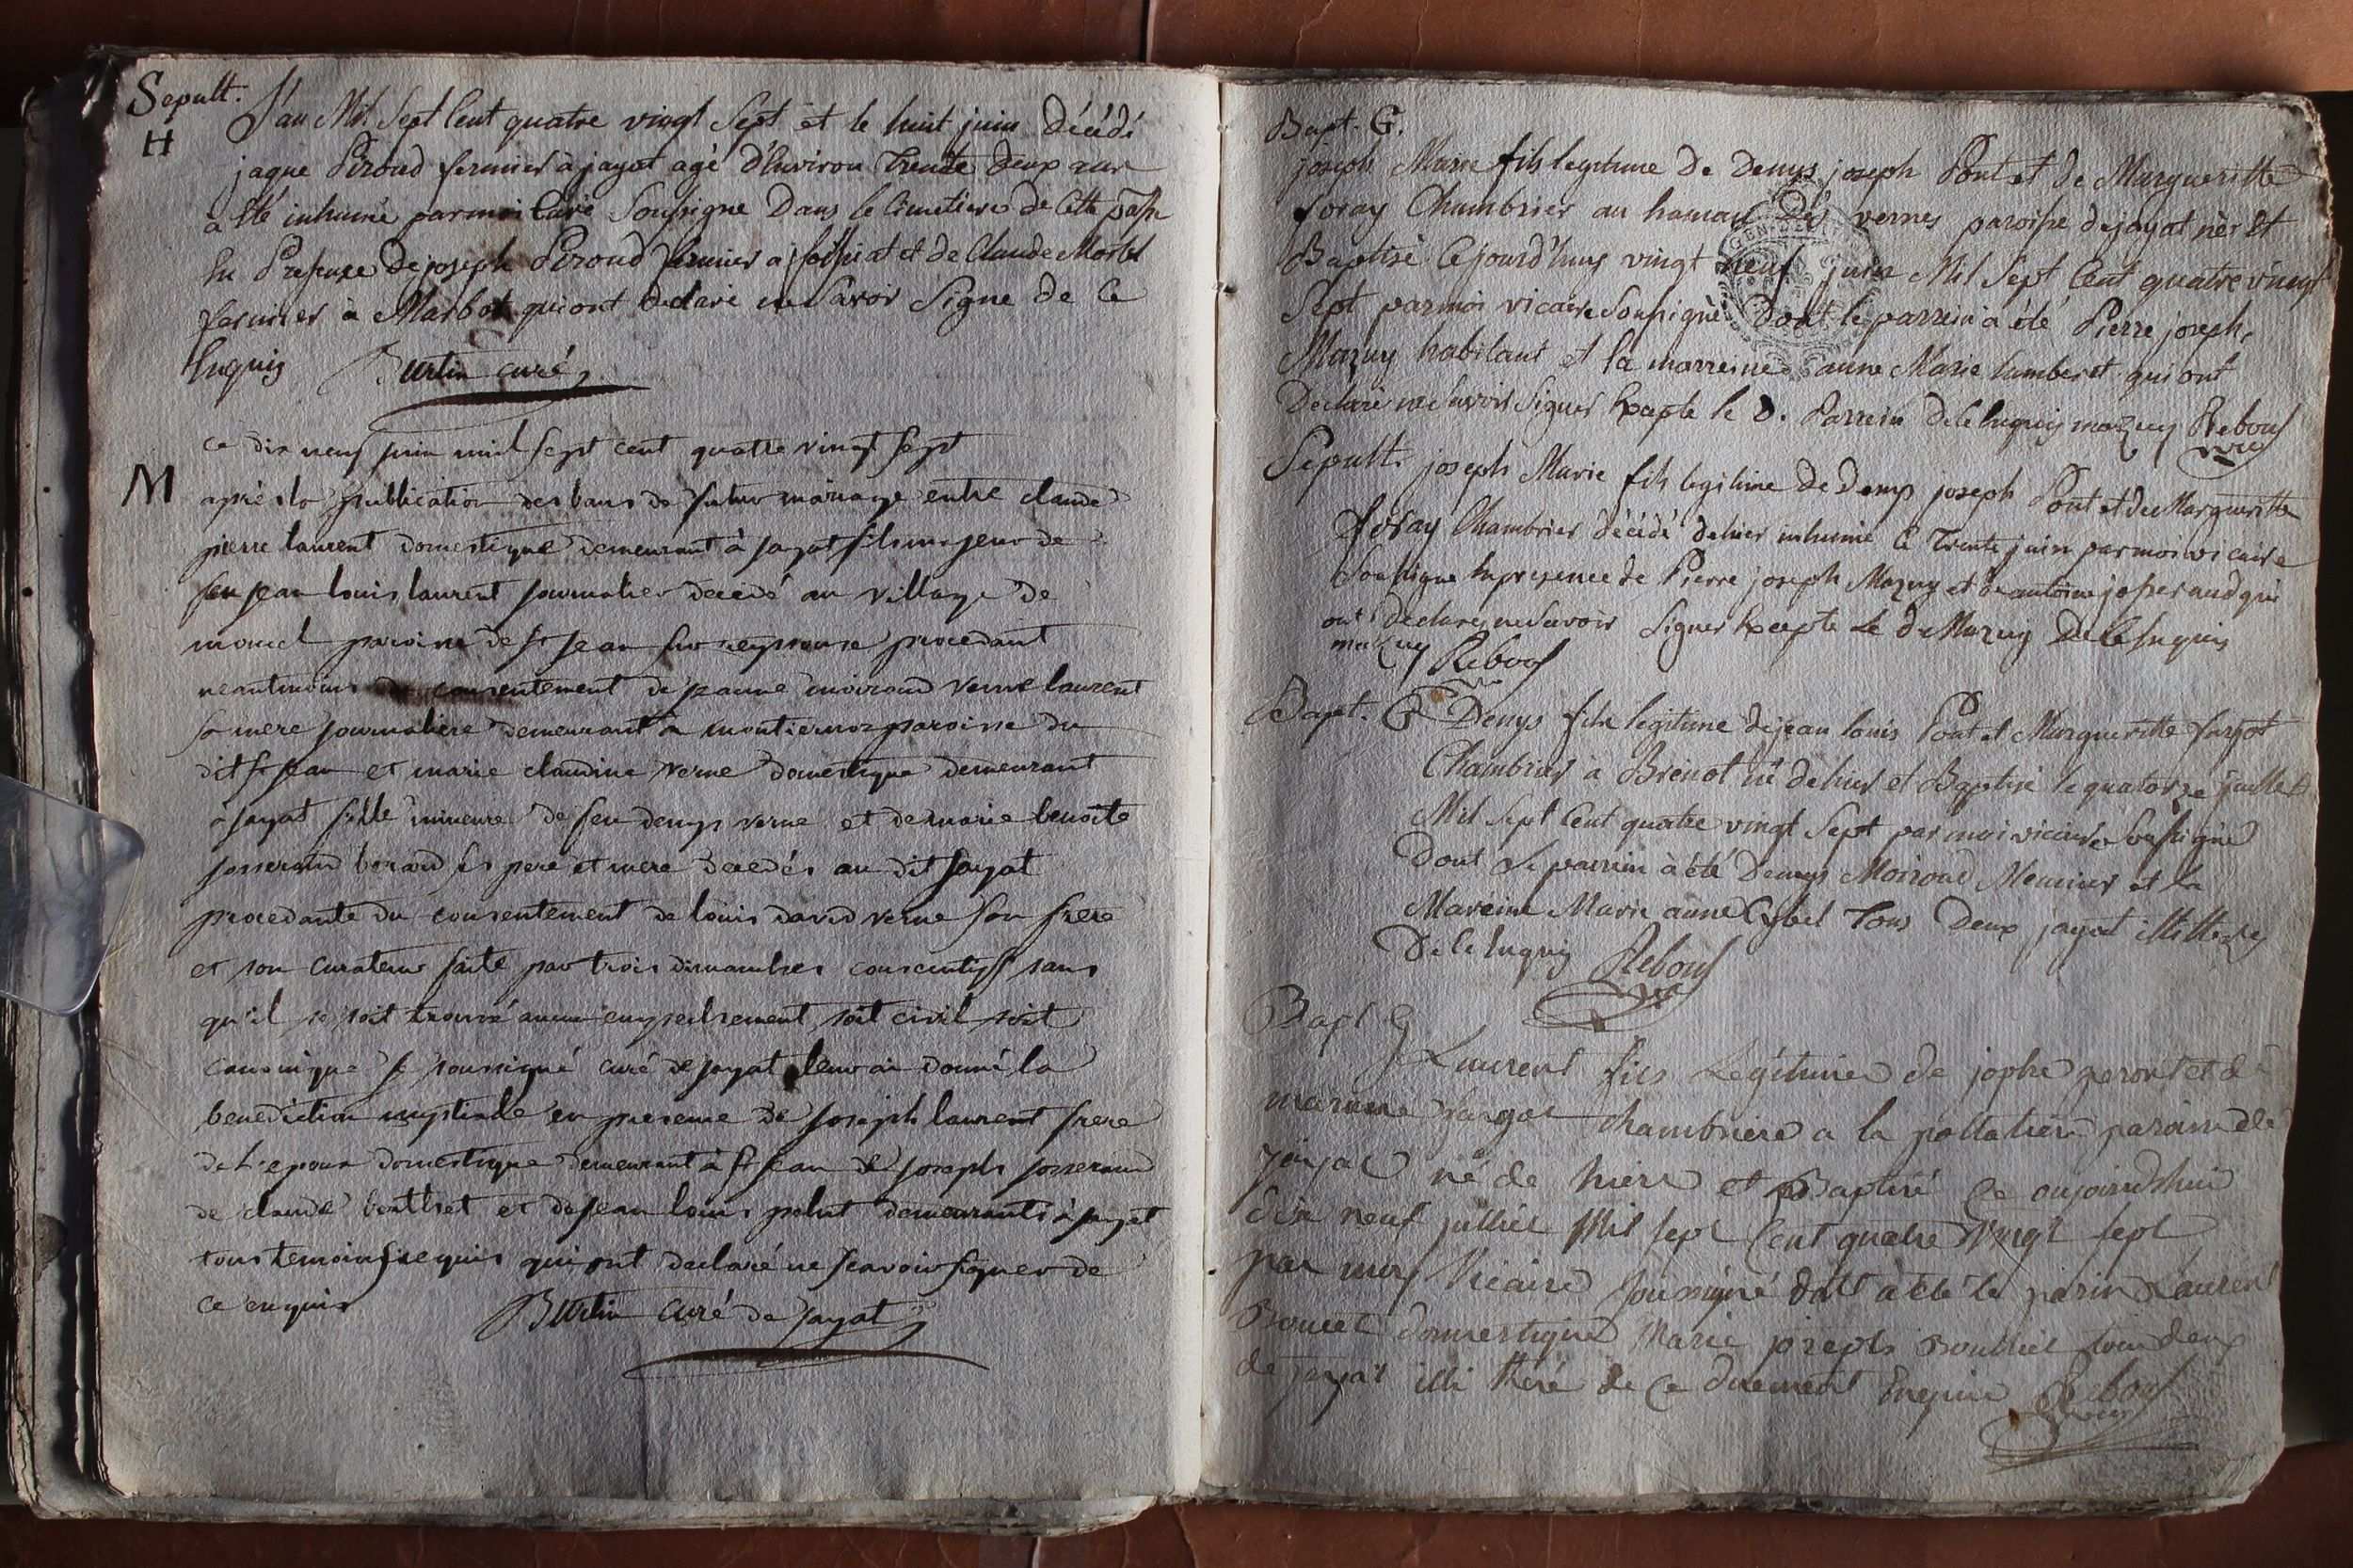 Sepult.
H
L'an Mil Sept Cent quatre vingt Sept et le huit juin décédé
jaque Piroud fermier à jayat agé d'Environ trente deux ans
a été inhumé par moi Curé Soussigne Dans le Cimetiere de Cette
En Presence de joseph Piroud fermier a et de Claude Morel
fermier à Marboz qui ont declaré ne Savoir Signe de Ce
Enquis Burtin curé
ce dix neuf juin mil sept cent quatre vingt sept
M
après la publication des bans de futur mariage entre claude
pierre laurent domestique demeurant à jayat fils majeur de
feu jean louis laurent journalier decedé au village de
paroisse de st jean sur reyssouze procedant
neantmoins consentement de jeanne moiroud veuve laurent
sa mere journaliere demeurant à montiernoz paroisse du
dit st jean et marie claudine verne domestique demeurant
a jayat fille mineure de feu denys verne et de marie benoite
josserand ses pere et mere decedés au dit jayat
procedante du consentement de louis david verne son frere
et son curateur faite par trois dimanches consecutifs sans
qu'il se soit trouvé aucun empechement soit civil soit
canonique je soussigné curé de jayat leur ai donné la
benediction nuptiale en presence de joseph laurent frere
de l'epoux domestique demeurant à st jean de joseph josserand
de claude et de jean louis demeurants à jayat
tous temoins requis qui ont declaré ne scavoir signer de
ce enquis Burtin curé de jayat
Bapt. G.
joseph Marie fils legitime de Denys joseph Pont et de Margueritte
foray Chambrier au hamau des vernes paroisse de jayat nèe et
Baptisé Cejourd'huy vingt neuf juin Mil Sept Cent quatre vingt
Sept par moi vicaire Soussignè Dont le parrein à été Pierre joseph
Mazuy habitant et la marreine anne Marie lamberet qui ont
Declaré ne Savoir Signer Excepte le d. Parrein de Ce Enquis mazuy Rebouf
vic
Sepult. joseph Marie fils legitime de Denys joseph Pont et de Margueritte
foray Chambrier décédé dehier inhumé le Trente juin par moi vicaire
Soussigne En presence de Pierre joseph Mazuy et de antoine josserand qui
ont declarez ne Savoir Signer Excepte Le d. Mazuy De Ce Enquis
mazuy Rebouf
Bapt. G Denys fils legitime de jean louis Pont et Margueritte
Chambrier a Brenot né dehier et Baptisé le quatorze juillet
Mil Sept Cent quatre vingt Sept par moi vicaire Soussigné
Dont le parrein à été Denys Moiroud Meunier et la
Mareine Marie anne Tous Deux jayat
De Ce Enquis Rebouf
Bapt G
Laurent fils Legitime de et de
chambriere a la paroisse de
jayat né de hiere et Baptisé Ce aujourdhui
dix neuf julliet Mil sept Cent quatre Vingt sept
par moy Vicaire soussigné dont a été le parin Laurent
Bouvet domestique Marie joseph tous deux
de jayat illi theré de Ce duement Enquis Rebouf